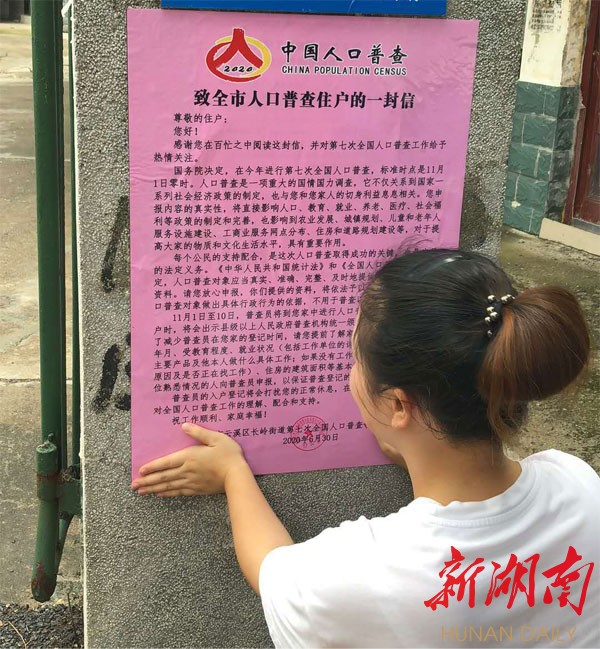 2020
中国人口普查
CHINA POPULATION CENSUS
致全市人口普查住户的一封信
尊敬的住户：
您好！
感谢您在百忙之中阅读这封信，并对第七次全国人口普查工作给予
热情关注。
国务院决定，在今年进行第七次全国人口普查，标准时点是11月
1日零时。人口普查是一项重大的国情国力调查，它不仅关系到国家一
系列社会经济政策的制定，也与您和您家人的切身利益息息相关。您申
报内容的真实性，将直接影响人口、教育、就业、养老、医疗、社会福
利等政策的制定和完善，也影响到农业发展、城镇规划、儿童和老年人
服务设施建设、工商业服务网点分布、住房和道路规划建设等，对于提
高大家的物质和文化生活水平，具有重要作用。
每个公民的支持配合，是这次人口普查取得成功的关键
的法定义务。《中华人民共和国统计法》和《全国人口
定，人口普查对象应当真实、准确、完整、及时地提
资料。请您放心申报，你们提供的资料，将依法予以
查对象做出具体行政行为的依据，不用于普查以
11月1日至10日，普查员将到您家中进行入口
户时，将会出示县级以上人民政府普查机构统一颁
了减少普查员在您家的登记时间，请您提前了解家
年月、受教育程度、就业状况（包括工作单位的详
主要产品及他本人做什么具体工作；如果没有工作
原因及是否正在找工作）、住房的建筑面积等基本
位熟悉情况的人向普查员申报，以保证普查登记的
普查员的入户登记将会打扰您的正常休息，在
对全国人口普查工作的理解、配合和支持。
祝工作顺利、家庭幸福！
云溪区长岭街道第七次全国人口普查
2020年6月30日
新湖南
HUNAN DAILY